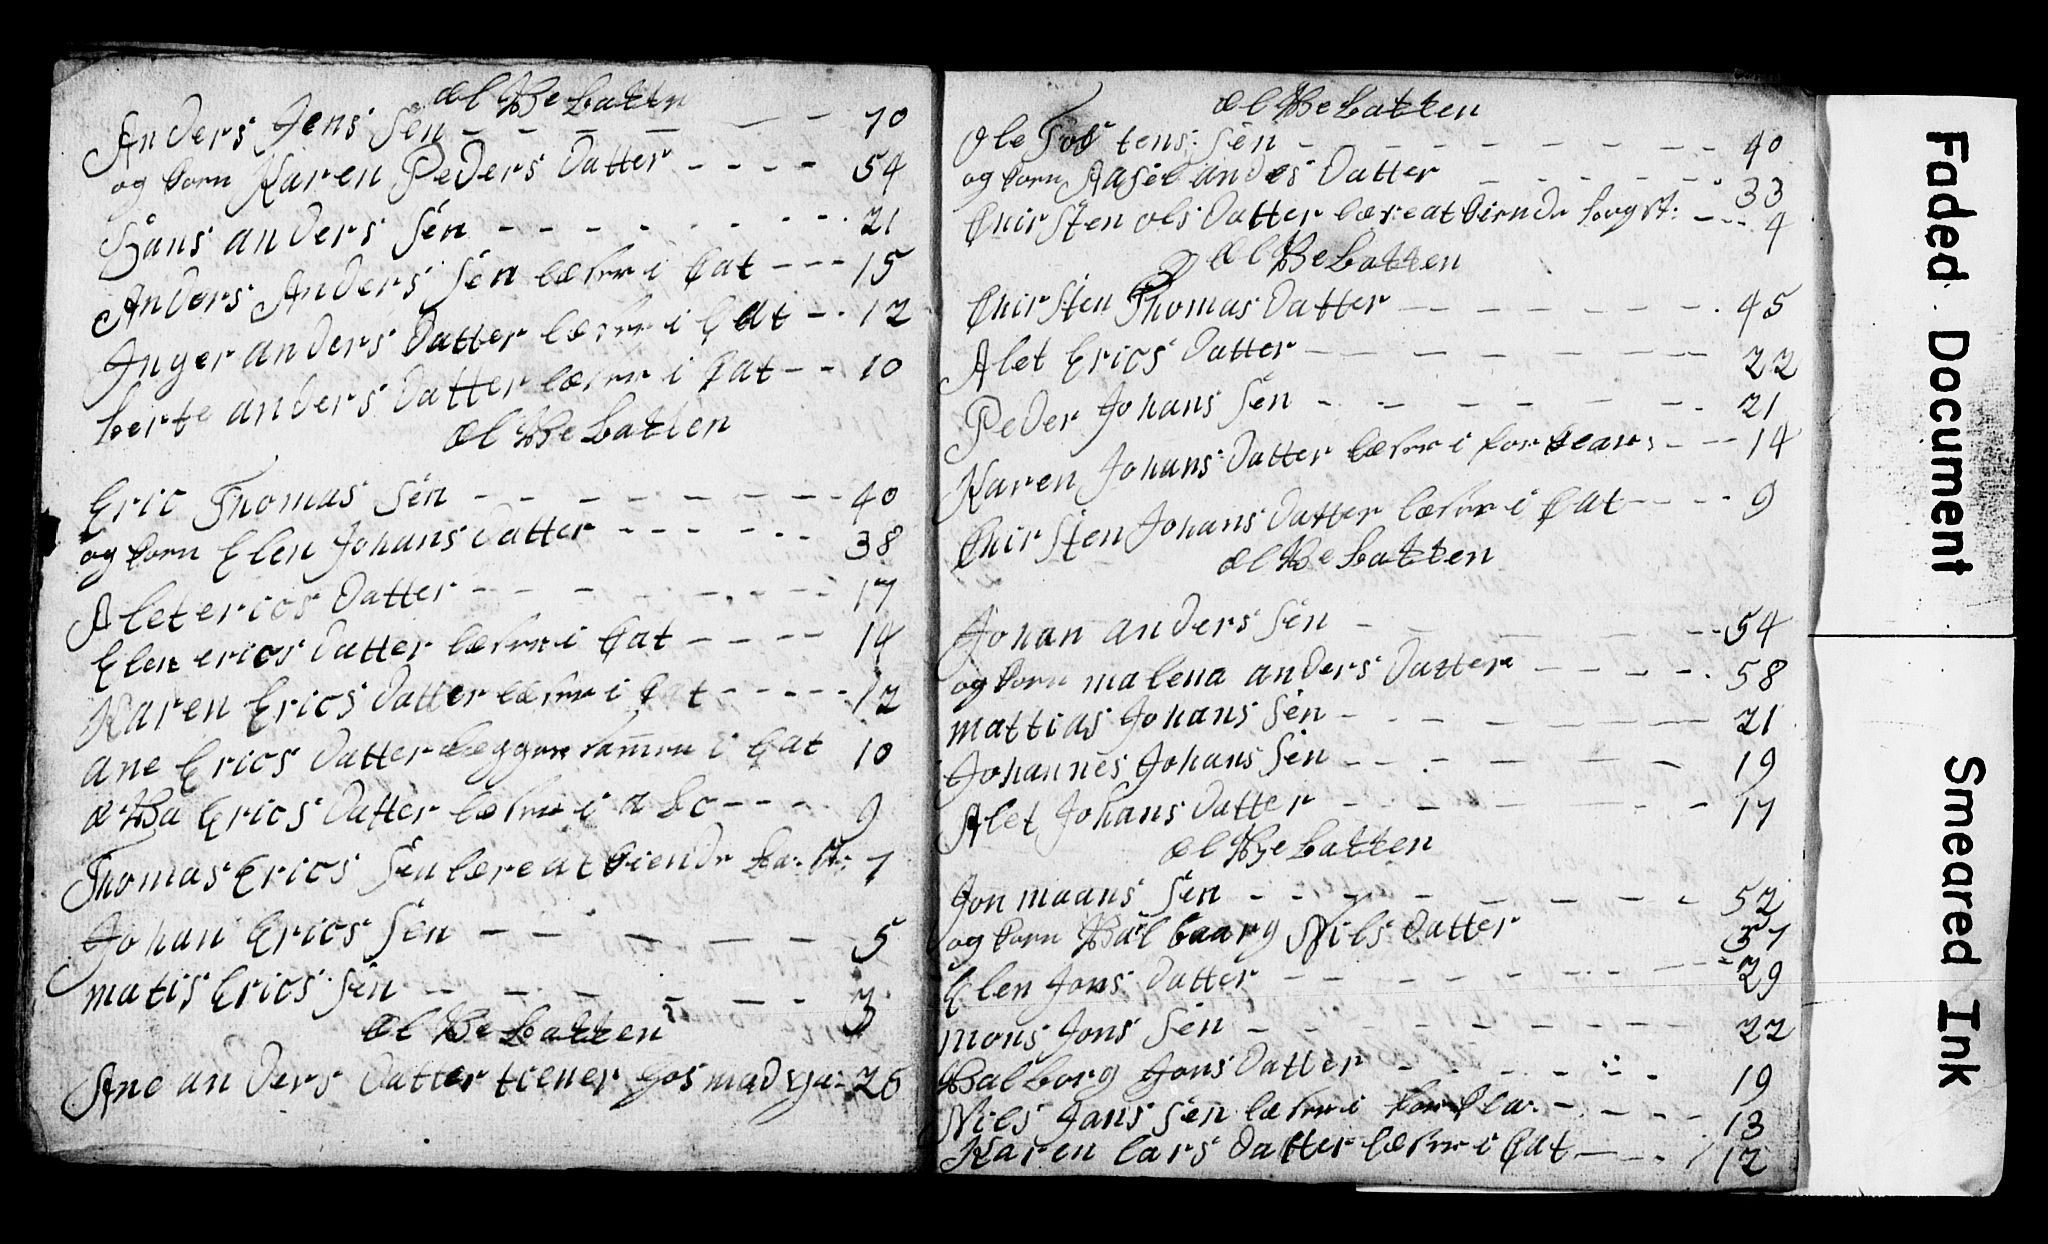 æl We batten
Anders Jens Sen 70
og kone Karen Peders Datter 54
Hans anders Sen 21
Anders Anders Sen læser i Cat 15
Inger anders Datter læser i Cat 12
berte anders Datter læser i Cat 10
æl We batten
Eric Thomas Sen 40
og kone Elen Johans Datter 38
Alet erics Datter 17
Elen erics Datter læser i Cat 14
Karen Erics Datter læser i Cat 12
ane Erics Datter lægger samen i Cat 10
Erics Datter læser i a b c 9
Thomas Erics Sen lære at kiende 7
Johan Erics Sen 5
matis Erics Sen 3
æl We batten
Ane anders Datter tiener hos 26
æl We batten
Ole Tostens Sen 40
og kone anders Datter 33
Chirsten ols Datter lære at kiende bogst: 4
æl We batten
Chirsten Thomas Datter 45
Alet Erics Datter 22
Peder Johans Sen 21
Karen Johans Datter læser i 14
Chirsten Johans Datter læser i Cat 9
æl We batten
Johan anders Sen 54
og kone malena anders Datter 58
mattias Johans Sen 21
Johannes Johans Sen 19
Alet Johans Datter 17
æl Wye batten
Jon maans Sen 52
og kone Walbaarg Nils Datter 57
Elen Jons Datter 29
mons Jons Sen 22
Walborg Jons Datter 19
Nils Jons Sen læser i 13
Karen lars Datter læser i Cat 12
Faded Document
Smeared Ink